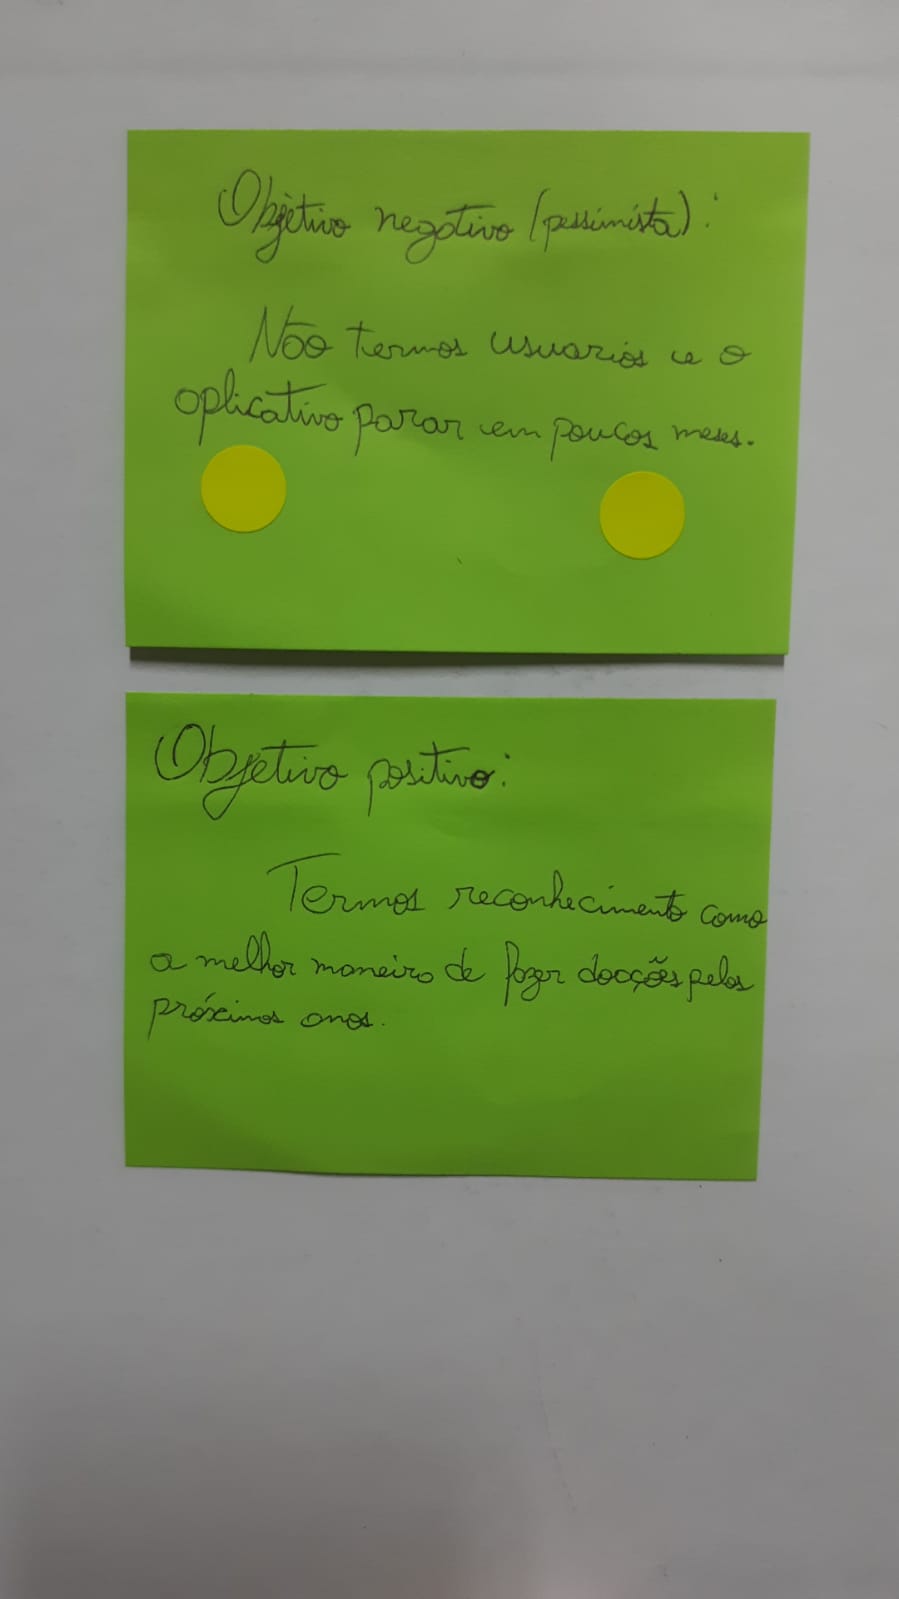 Objetivo negativo (pessimista):
Não termos usuarios e o
aplicativo parar em poucos meses.
Objetivo positivo:
Termos reconhecimento como
a melhor maneira de fazer doações pelos
próximos anos.